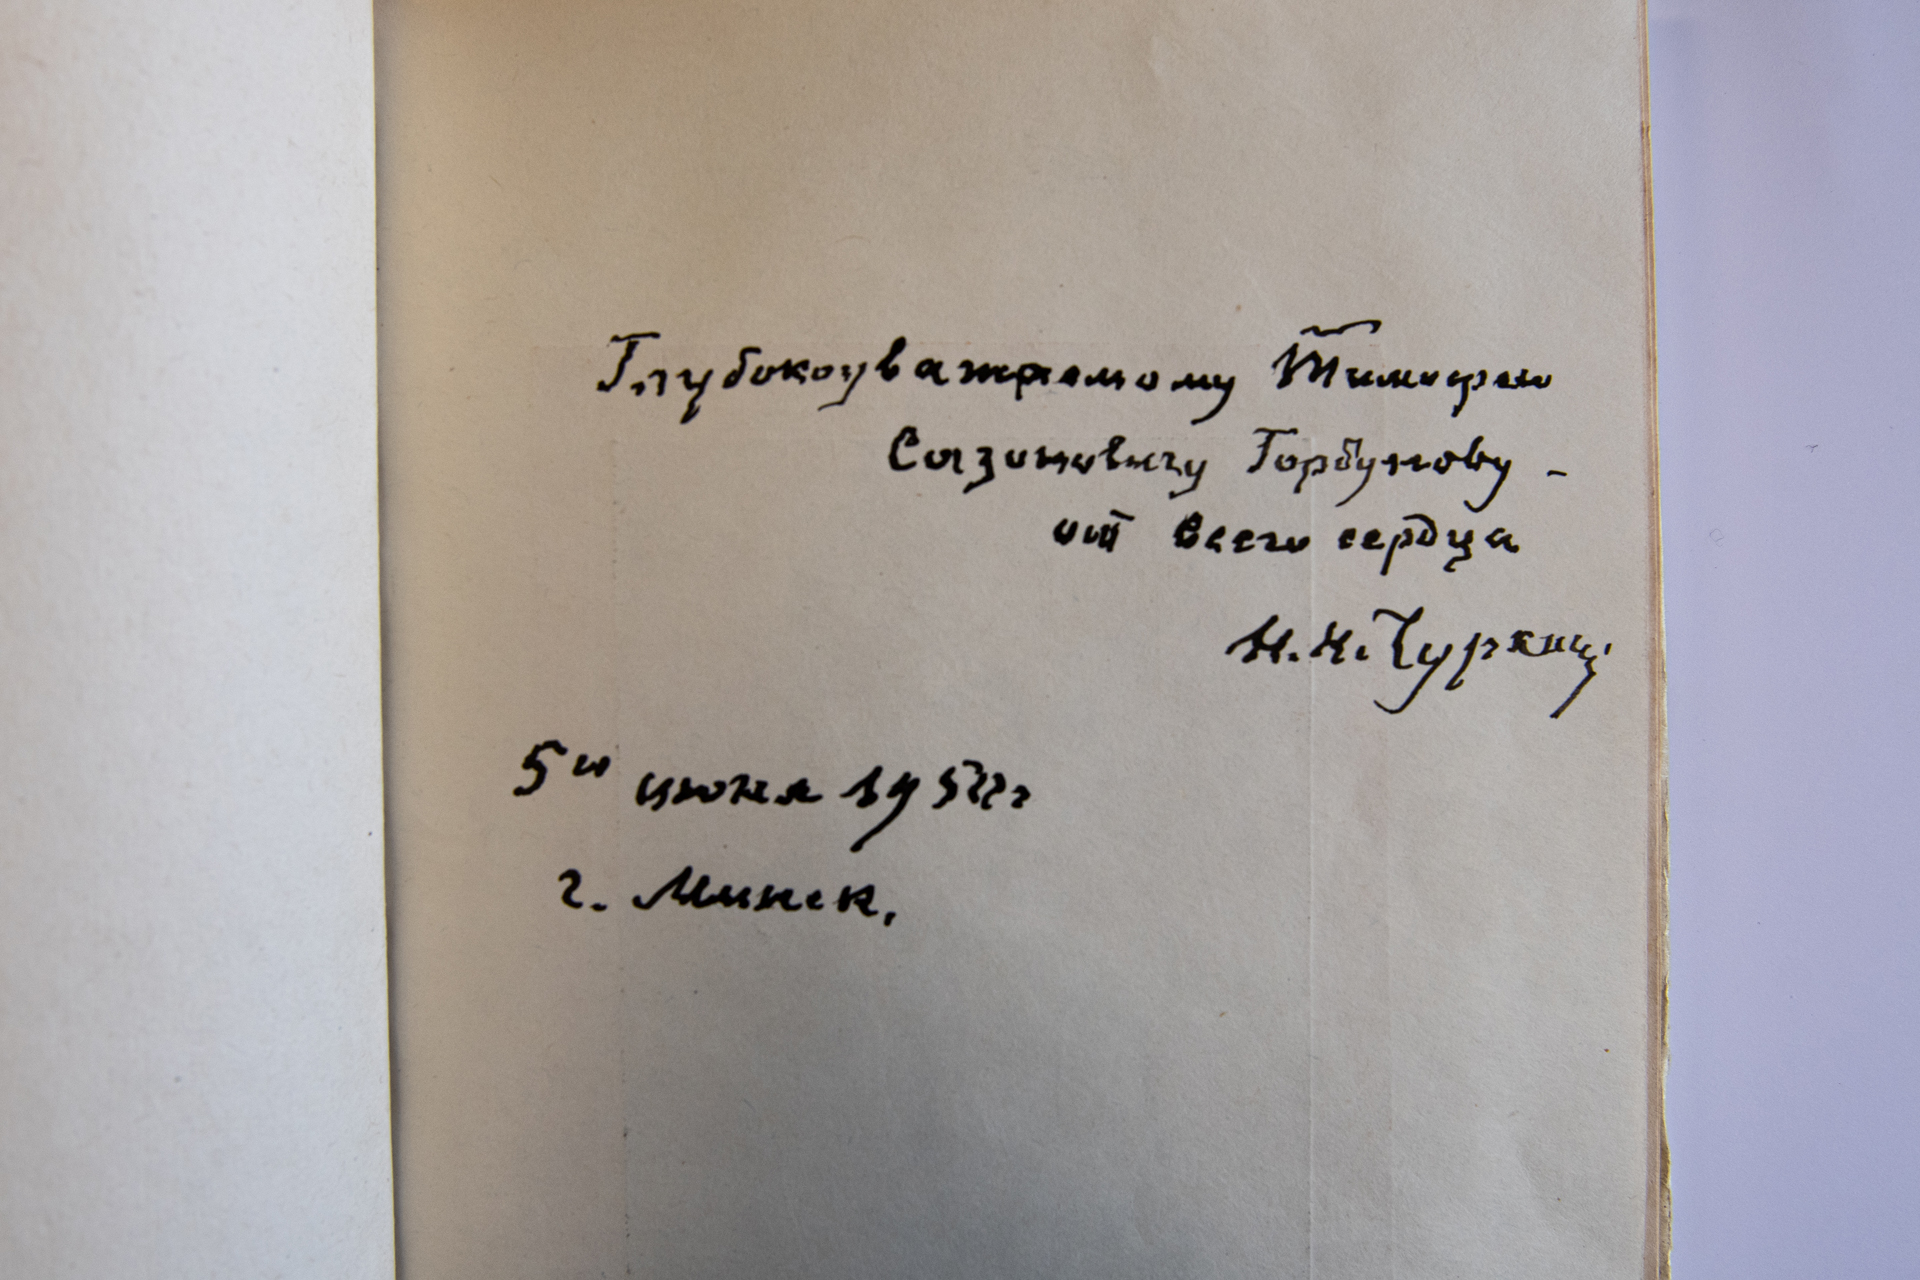 Глубокоуважаемому Тимофею
Сазоновичу Горбунову -
от всего сердца
Н.Н. Чуркин
5го июня 1952г.
г. Минск.